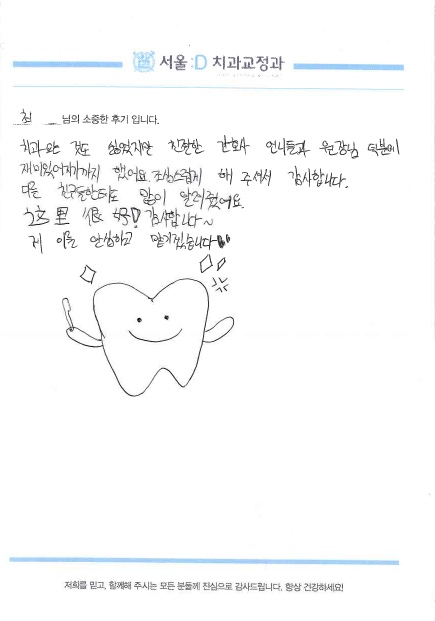 서울:D 치과교정과
최 님의 소중한 후기 입니다.
치과 오는 것도 싫었지만 친절한 간호사 언니들과 원장님 덕분에
재미있어지기까지 했어요. 조심스럽게 해 주셔서 감사합니다.
다른 친구들한테도 많이 알려줬어요.
这里 很 好! 감사합니다~
제 이를 안심하고 맡기겠습니다
저희를 믿고, 함께해 주시는 모든 분들께 진심으로 감사드립니다. 항상 건강하세요!